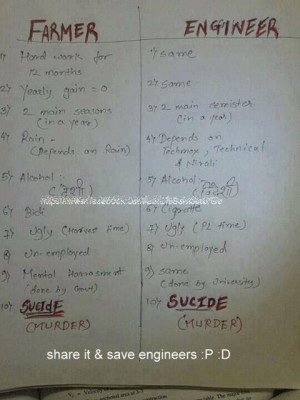 FARMER
ENGINEER
1) Hard work for
12 months
1) same
2) Yearly gain = 0
2) same
3) 2 main seasons
(in a year)
3) 2 main semister
(in a year)
4) Rain -
(Depends on Rain)
4) Depends on
Techmax, Technical
& Nirali
5) Alcohol:
(देशी)
5) Alcohol:-
(विदेशी)
6) Bidi
6) Cigarette
7) Ugly (Harvest time)
7) Ugly (PL time)
8) Un-employed
8) Un-employed
9) Mental Harrasment
(done by Govt)
9) same
(done by University)
10) SUCIDE
(MURDER)
10) SUCIDE
(MURDER)
share it & save engineers :P :D